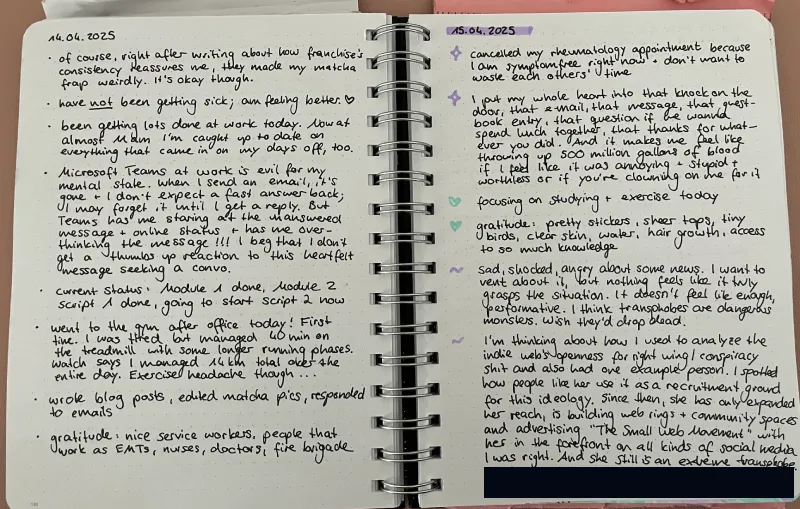 14.04.2025
· of course, right after writing about how franchise's
consistency reassures me, they made my matcha
frap weirdly. It's okay though.
· have not been getting sick; am feeling better. ♡
· been getting lots done at work today. Now at
almost 11am I'm caught up to date on
everything that came in on my days off, too.
· Microsoft Teams at work is evil for my
mental state. When I send an email, it's
gone + I don't expect a fast answer back;
I may forget it until I get a reply. But
Teams has me staring at the unanswered
message + online status + has me over-
thinking the message !!! I beg that I don't
get a thumbs up reaction to this heartfelt
message seeking a convo.
· current status: Module 1 done, Module 2
script 1 done, going to start script 2 now
· went to the gym after office today! First
time. I was tired but managed 40 min on
the treadmill with some longer running phases.
Watch says I managed 14km total over the
entire day. Exercise headache though...
· wrote blog posts, edited matcha pics, responded
to emails
· gratitude: nice service workers, people that
work as EMTs, nurses, doctors, fire brigade
15.04.2025
cancelled my rheumatology appointment because
I am symptomfree right now + don't want to
waste each others' time
I put my whole heart into that knock on the
door, that e-mail, that message, that guest-
book entry, that question if he wanna
spend lunch together, that thanks for what-
ever you did. And it makes me feel like
throwing up 500 million gallons of blood
if I feel like it was annoying + stupid +
worthless or if you're clowning on me for it
focusing on studying + exercise today
gratitude: pretty stickers, sheer tops, tiny
birds, clear skin, water, hair growth, access
to so much knowledge
~ sad, shocked, angry about some news. I want to
vent about it, but nothing feels like it truly
grasps the situation. It doesn't feel like enough,
performative. I think transphobes are dangerous
monsters. Wish they'd drop dead.
~ I'm thinking about how I used to analyze the
indie web's openness for right wing/conspiracy
shit and also had one example person. I spotted
how people like her use it as a recruitment ground
for this ideology. Since then, she has only expanded
her reach, is building web rings + community spaces
and advertising "The Small Web Movement" with
her in the forefront on all kinds of social media.
I was right. And she still is an extreme transphobe.